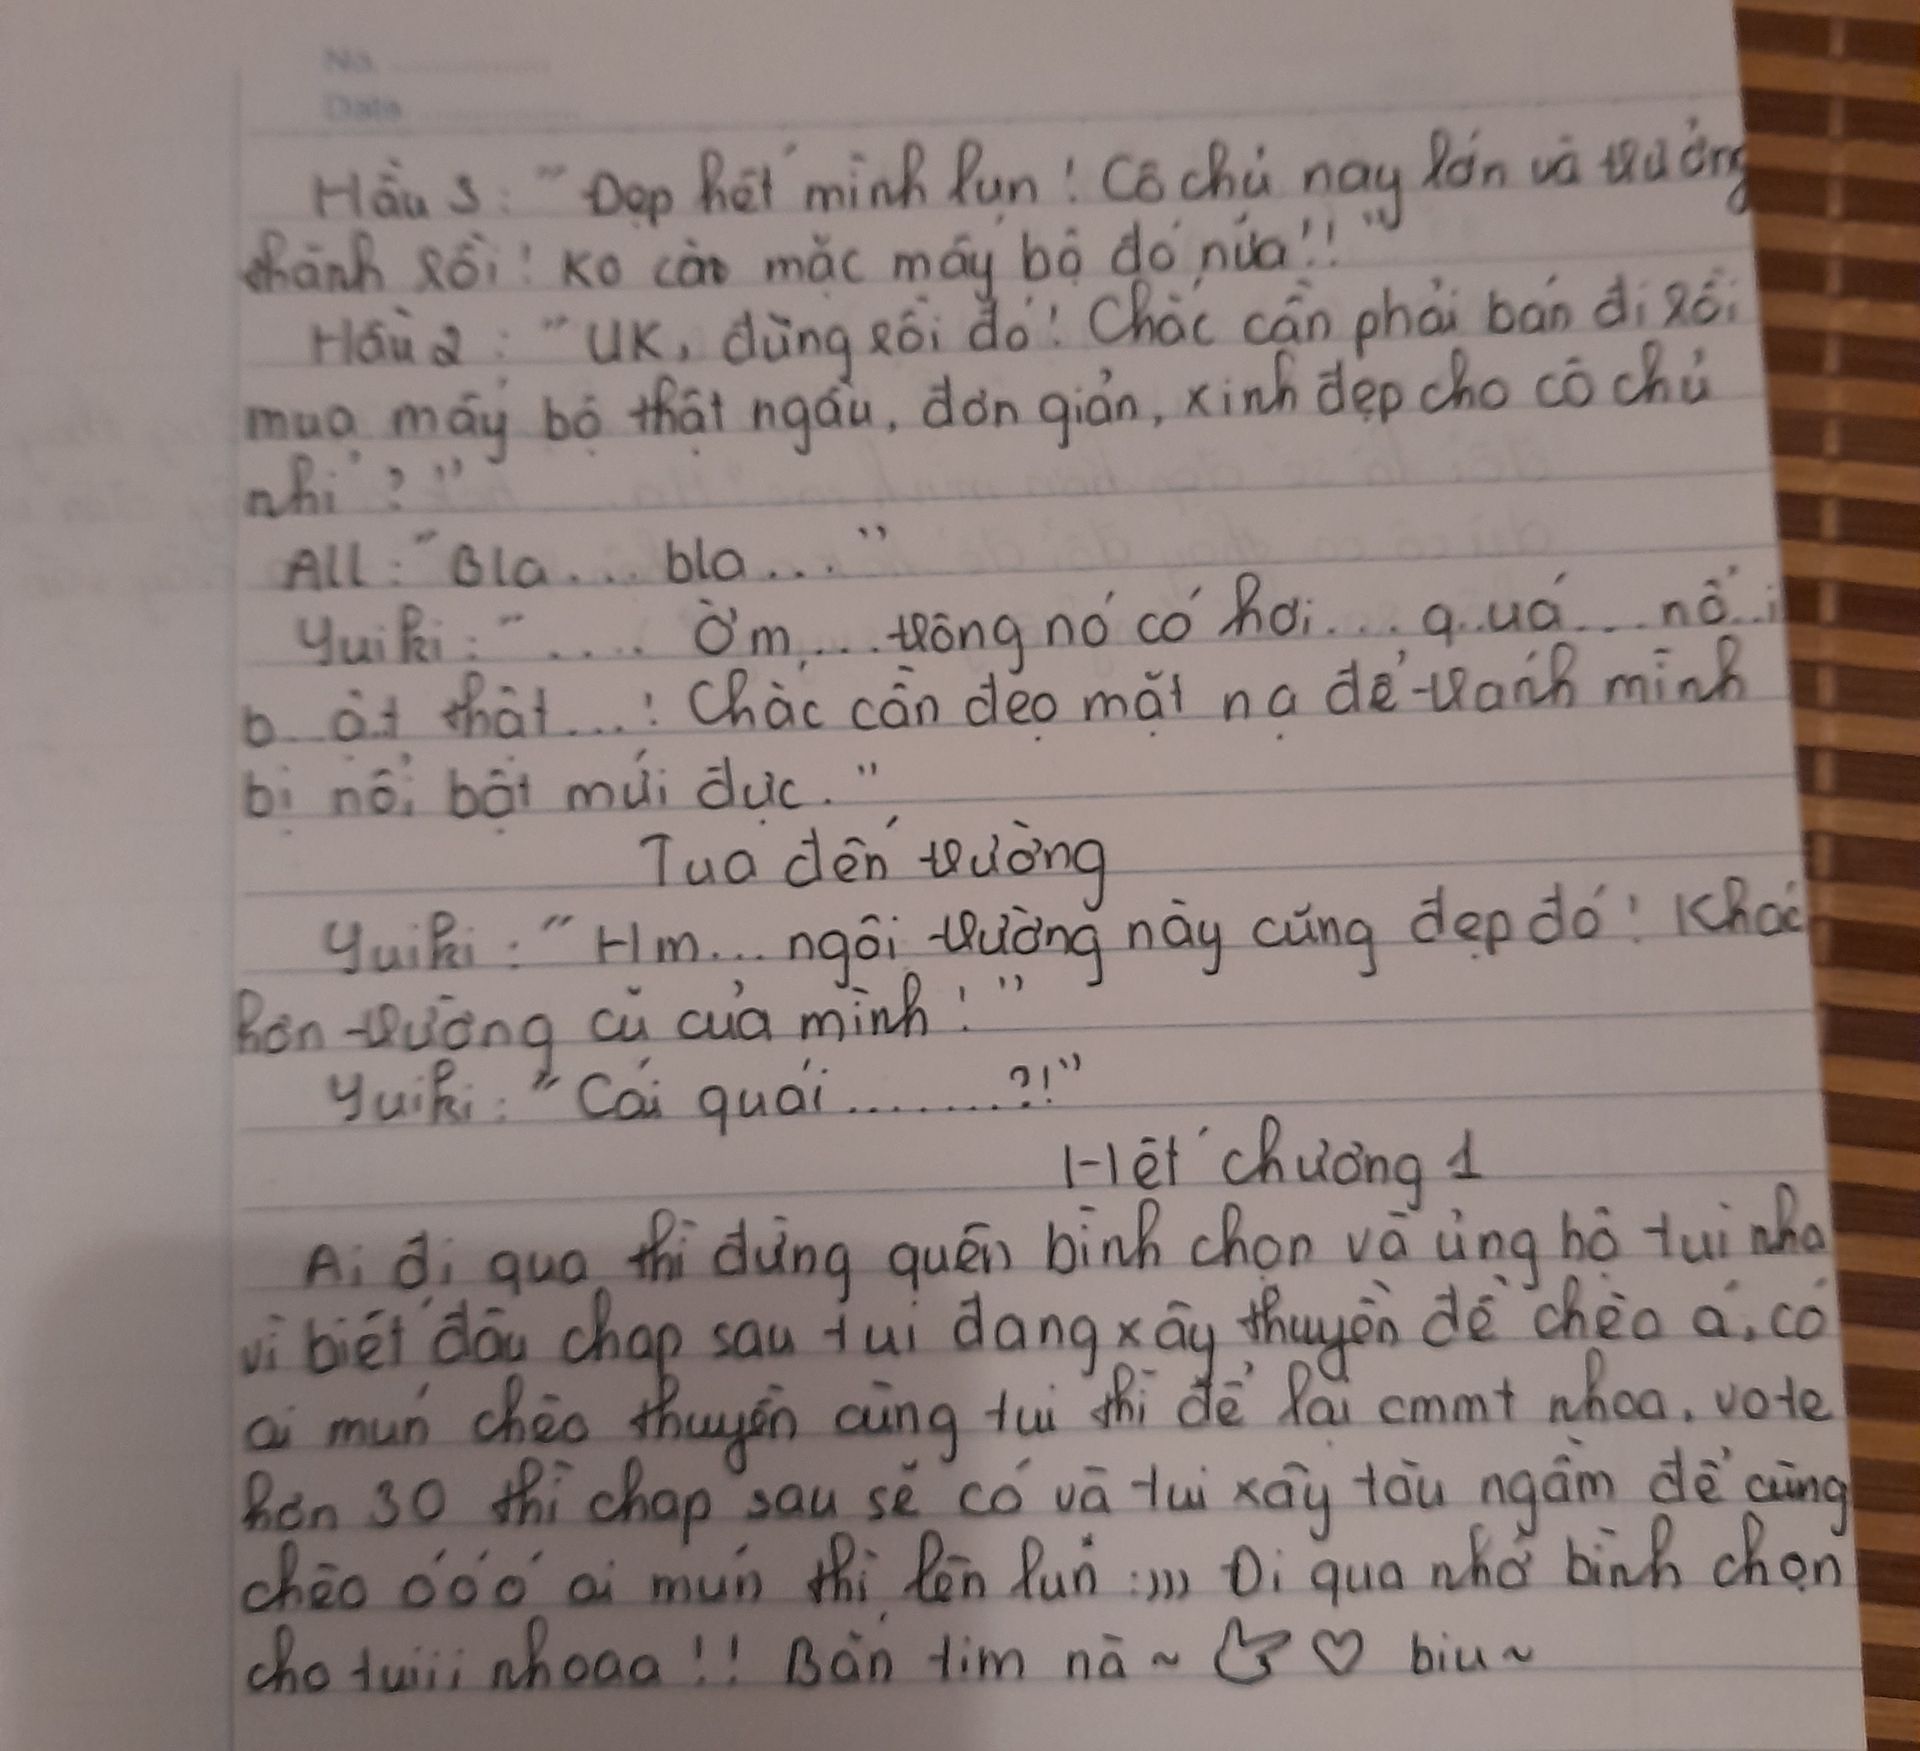 No.
Date
Hầu 3: "Đẹp hết mình lun! Cô chủ nay lớn và trưởng
thành rồi! Ko cần mặc mấy bộ đó nữa!!"
Hầu 2: "UK, đúng rồi đó! Chắc cần phải bán đi rồi
mua mấy bộ thật ngầu, đơn giản, xinh đẹp cho cô chủ
nhỉ?"
All: "Bla... bla..."
Yuiki: ".... Ờm... trông nó có hơi... q..uá... nổ..i
b..ật thật...! Chắc cần đeo mặt nạ để tránh mình
bị nổi bật mứi đực."
Tua đến trường
Yuiki: "Hm... ngôi trường này cũng đẹp đó! Khác
hơn trường cũ của mình!"
Yuiki: "Cái quái ........?!"
Hết chương 1
Ai đi qua thì đừng quên bình chọn và ủng hộ tui nha
vì biết đâu chap sau tui đang xây thuyền để chèo á, có
ai mún chèo thuyền cùng tui thì để lại cmmt nhoa, vote
hơn 30 thì chap sau sẽ có và tui xây tàu ngầm để cùng
chèo óóó ai mún thì lên lun :))) Đi qua nhớ bình chọn
cho tuiii nhoaa!! Bắn tim nà ~ ♡ biu~